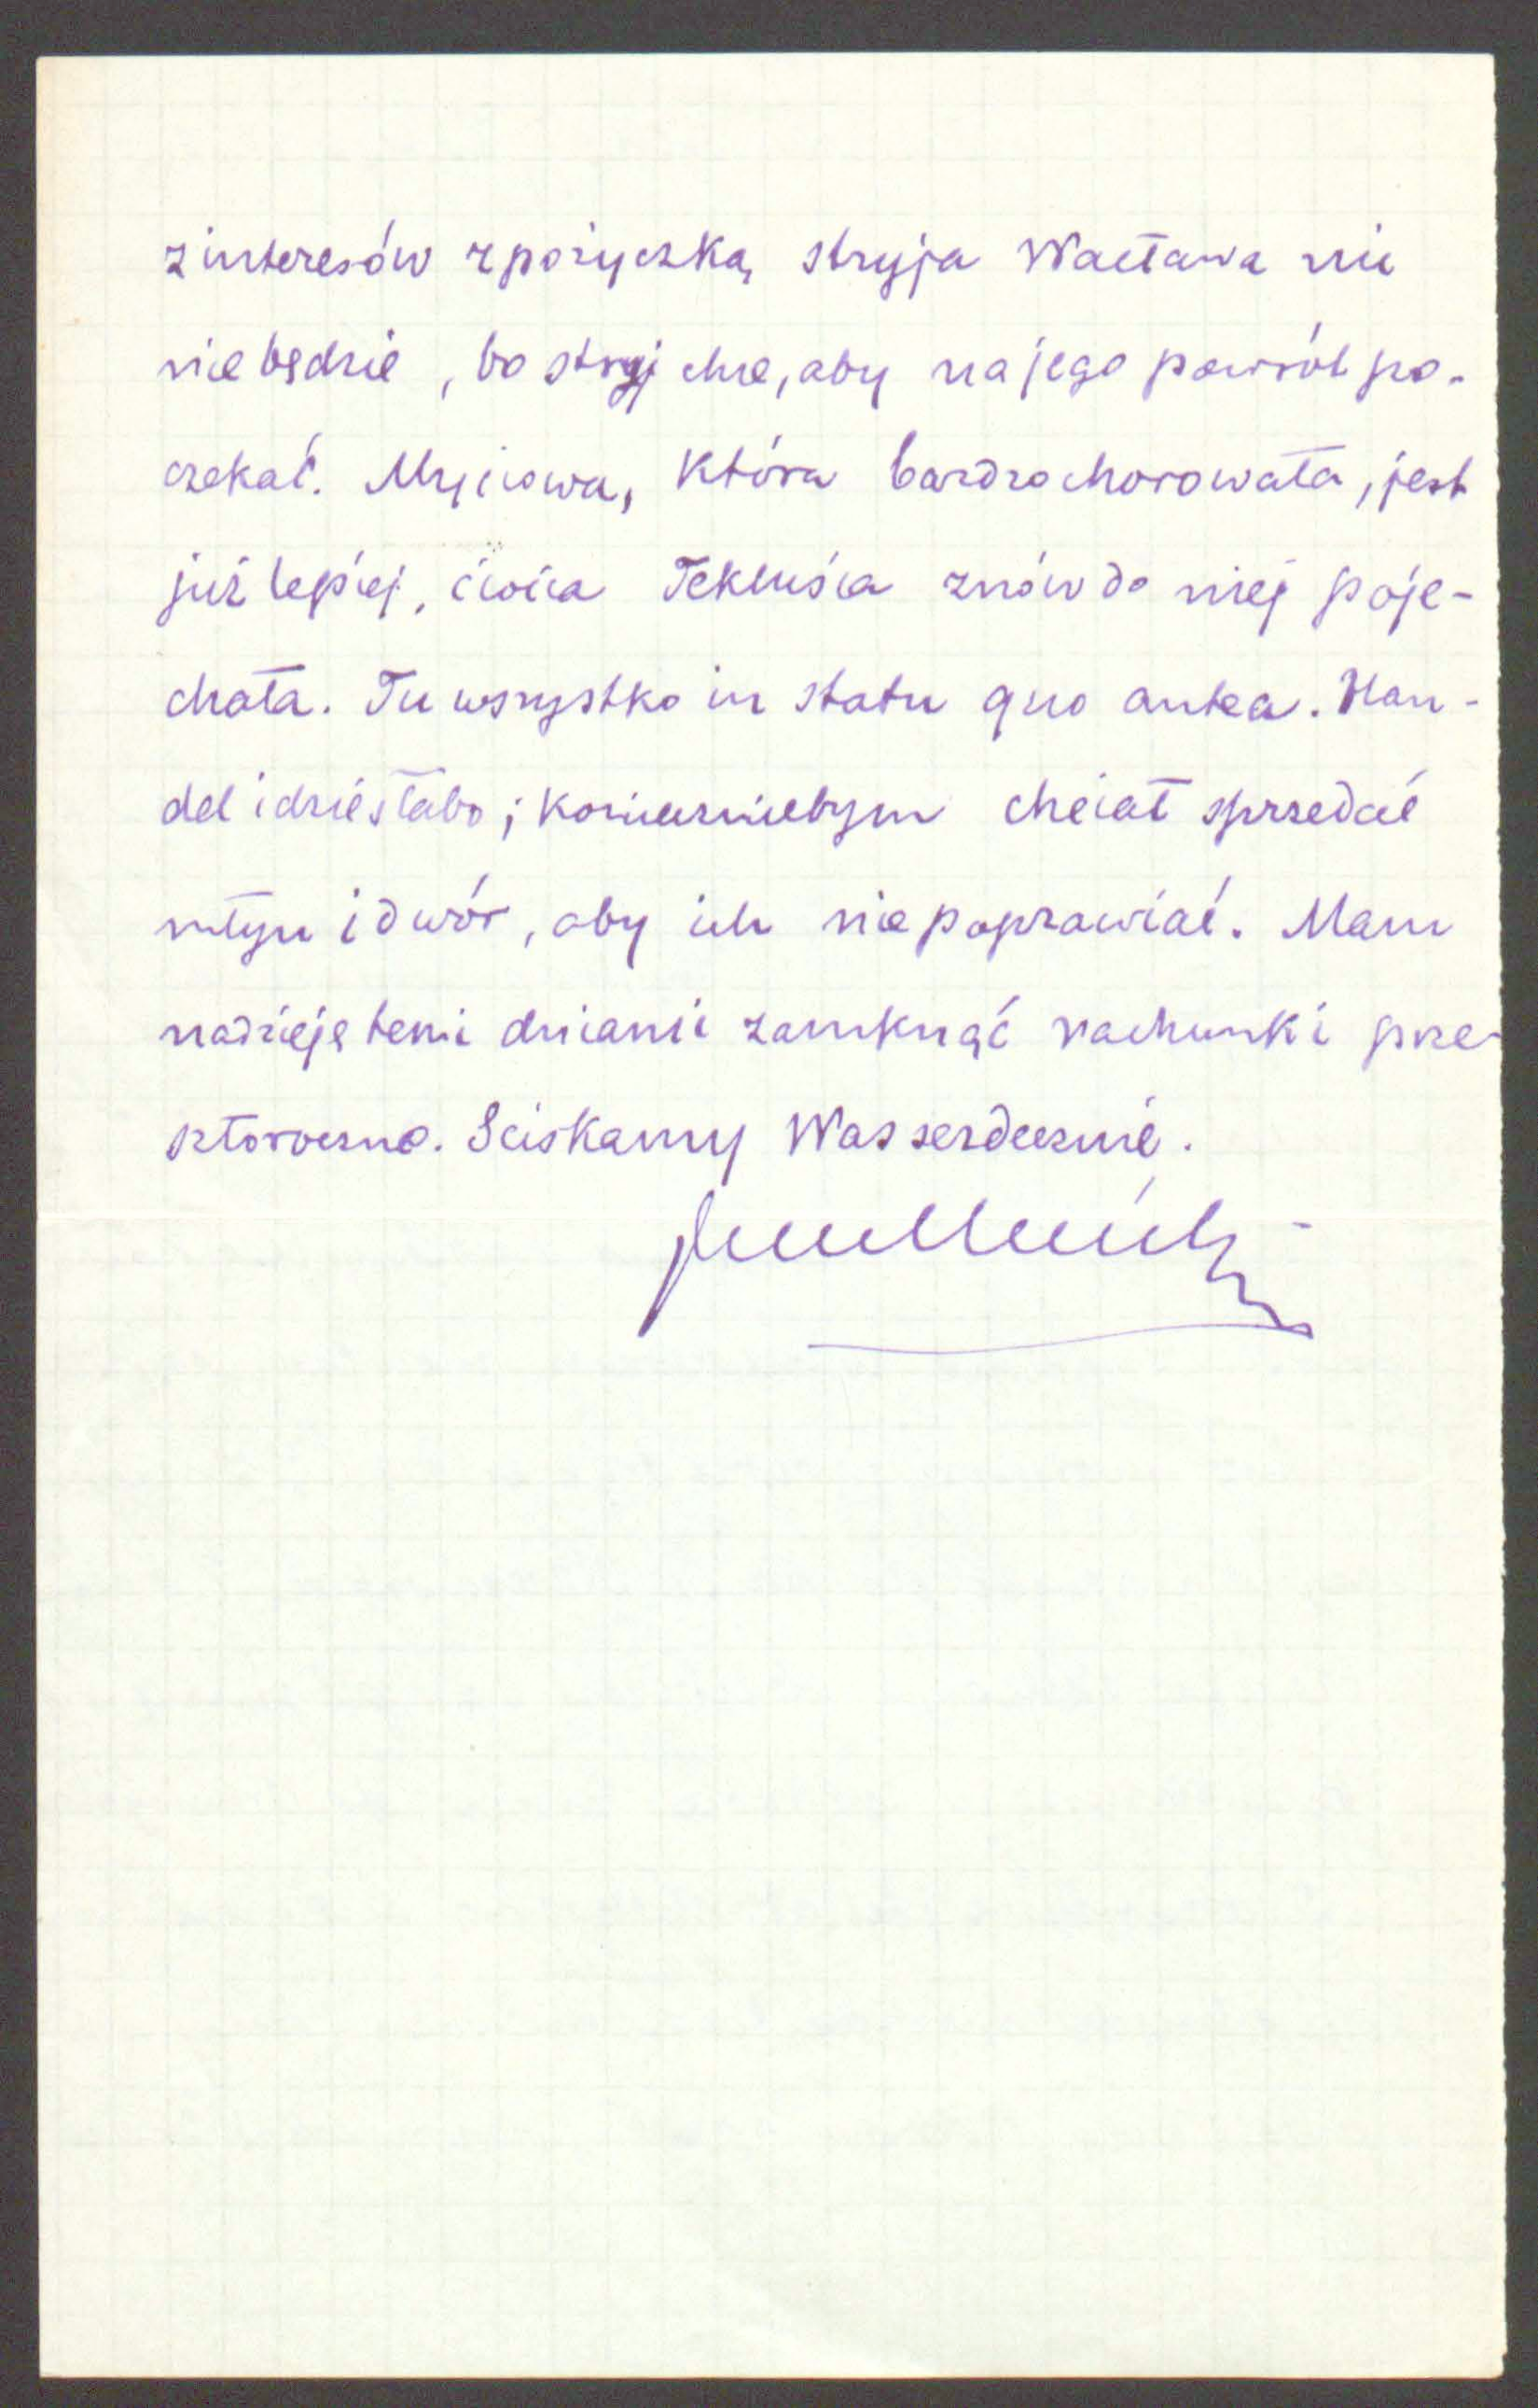 z interesów z pożyczką stryja Wacława nic
nie będzie, bo stryj chce, aby na jego powrót po-
czekać. Myciowa, która bardzo chorowała, jest
już lepiej, ciocia Teklusia znów do niej poje-
chała. Tu wszystko in statu quo antea. Han-
del idzie słabo; koniecznie bym chciał sprzedać
młyn i dwór, aby ich nie poprawiać. Mam
nadzieję temi dniami zamknąć rachunki
Sciskamy Was serdecznie.